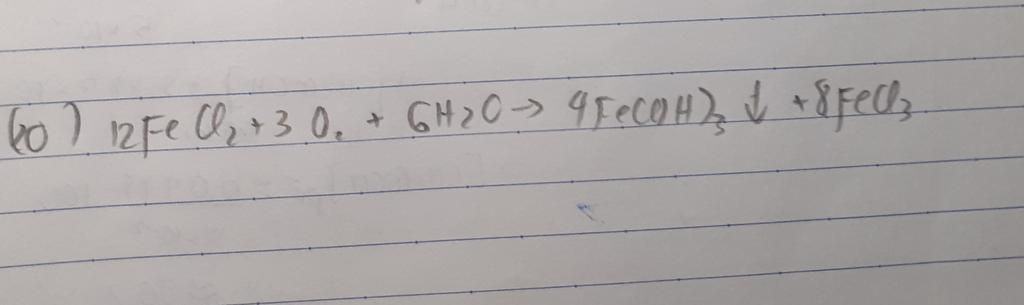 60) 12FeCl₂ + 3O₂ + 6H₂O → 4Fe(OH)₃ ↓ + 8FeCl₃